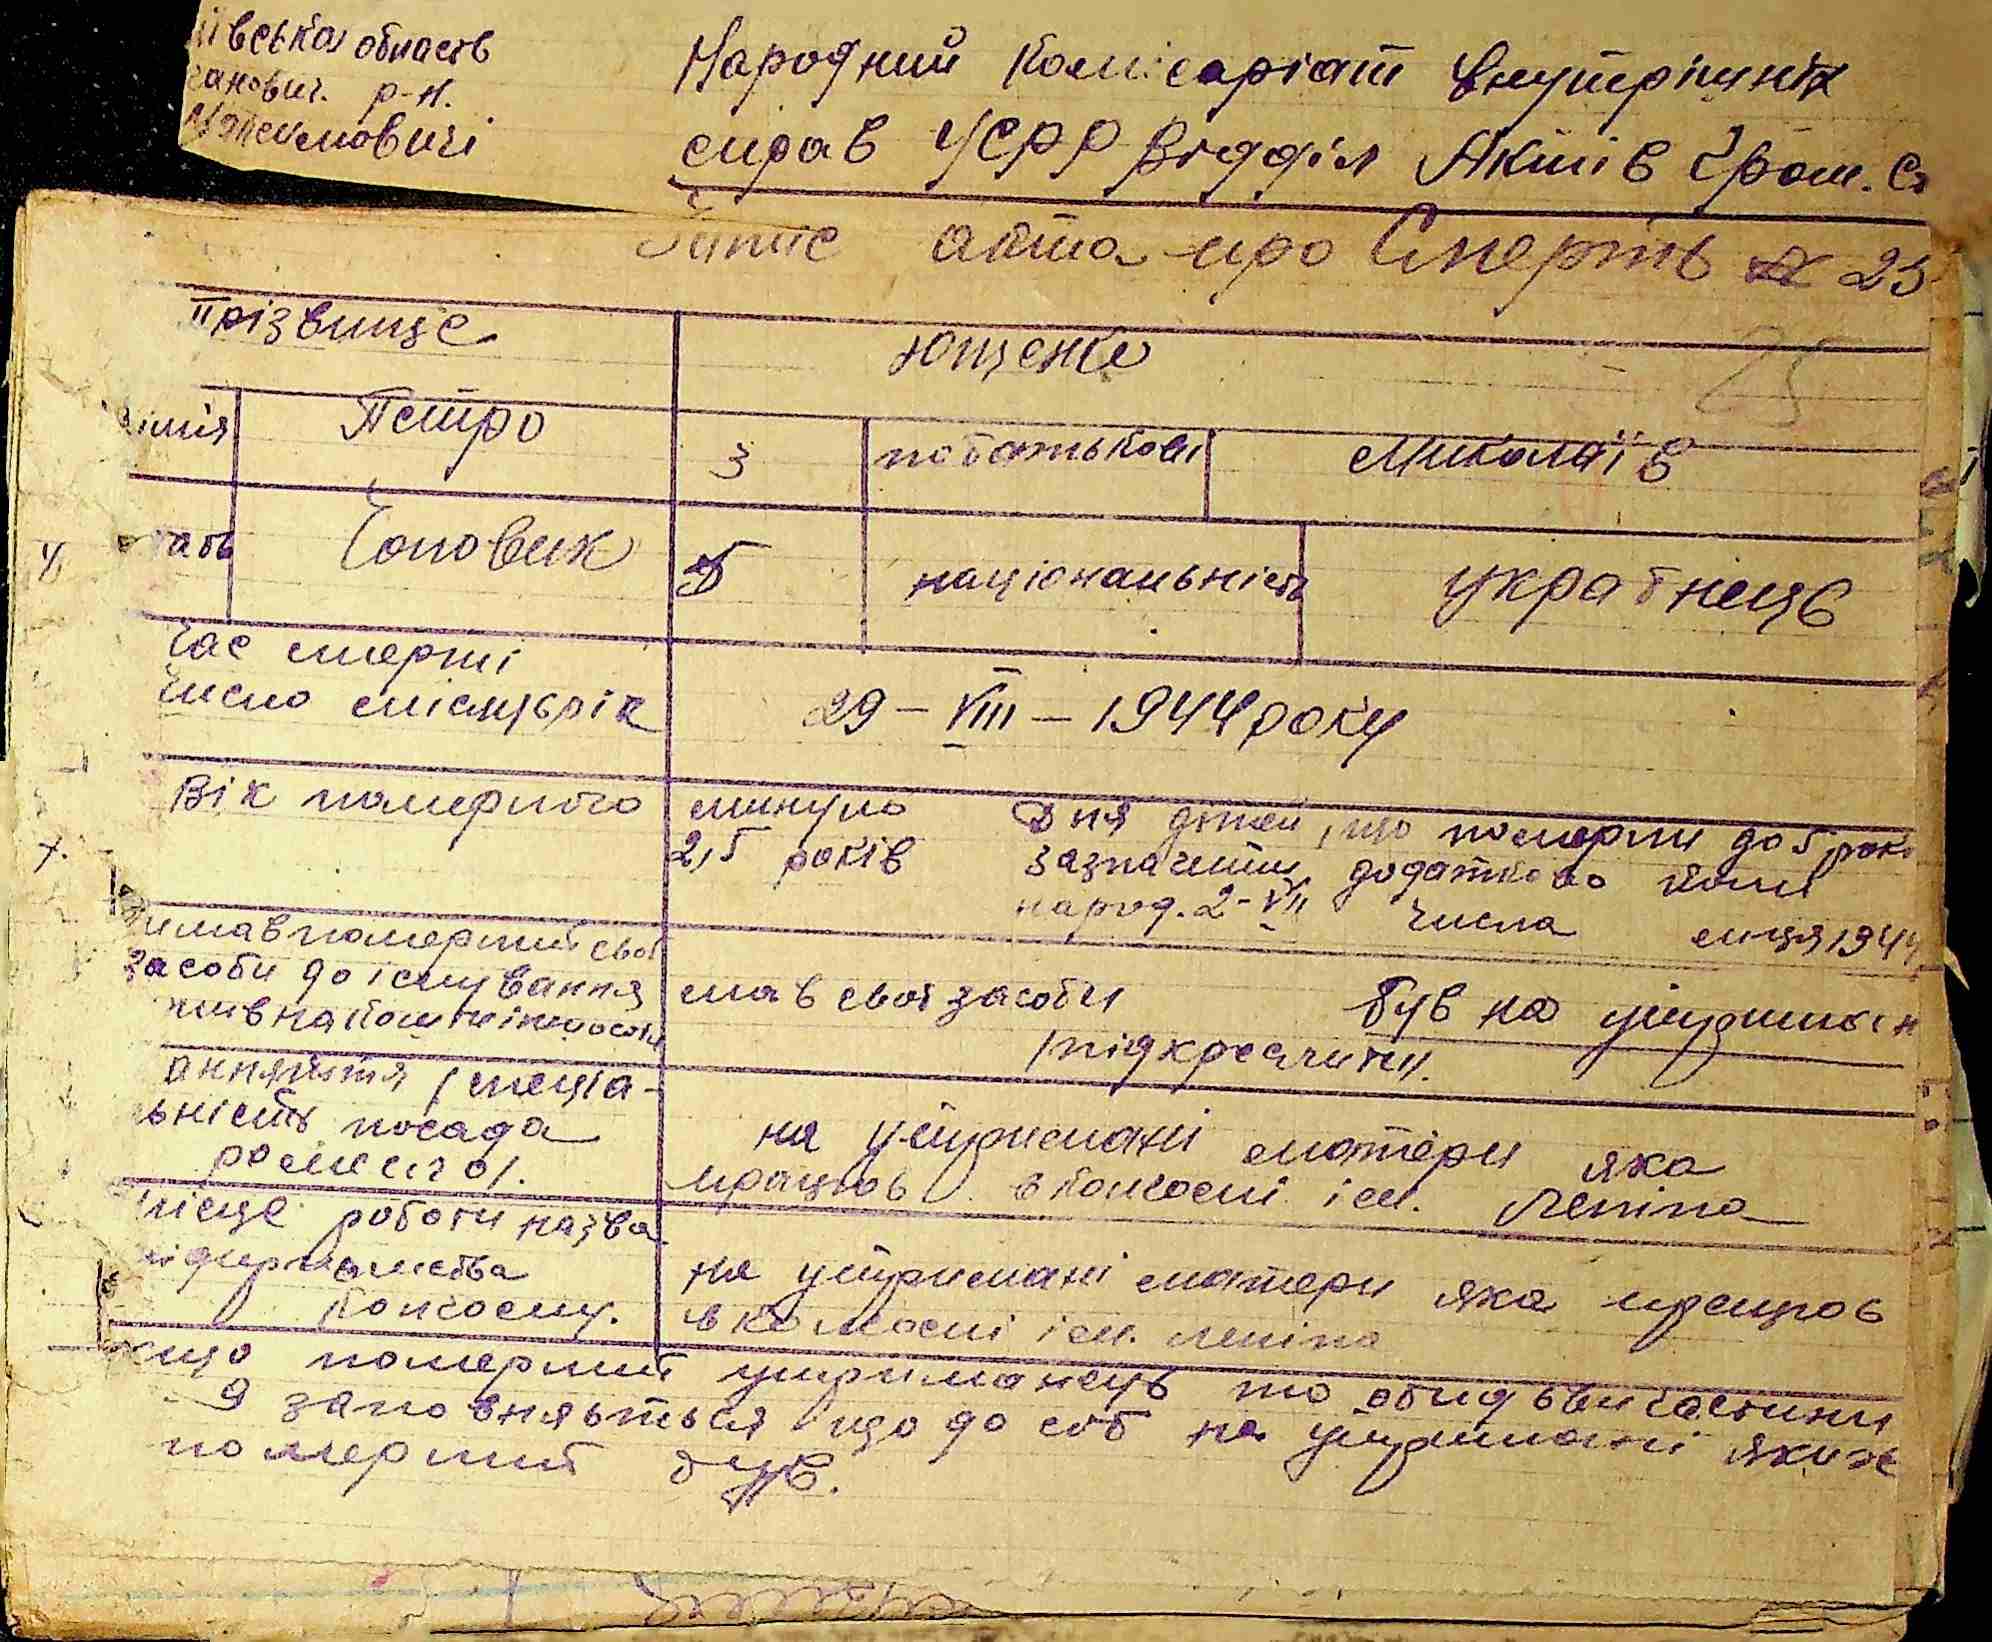 ївська область
анович. р-н.
Народний Комісаріат Внутрішніх
справ УСРР Відділ Актів Гром. С
Запис акта про Смерть № 25
25
Прізвище Ющенко
імія Петро 3 по батькові Миколаїв
стать Чоловик 5 національність українець
Час смерті
Число місяць рік 29 – VIII – 1944 року
Вік померлого минуло Для дітей, що померли до 5 рокі
2,5 років зазначити додатково коли
народ. 2-VII числа м-ця 1944
чи мав померлий свої
засоби до існування мав свої засоби був на утриман
/підкреслити.
жив на кошти
заняття /спеціа-
льність посада на утримані матери яка
ремесло/. працюв. в колгоспі ім. Леніна
місце роботи назва
підприємства на утримані матери яка працюв
колгоспу. в колгоспі ім. леніна
якщо померлий утриманець то обидьви частини
9 заповняється що до соб на утримані яких
померлий був.